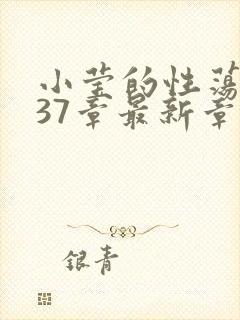 小莹的性荡
37章最新章
银青